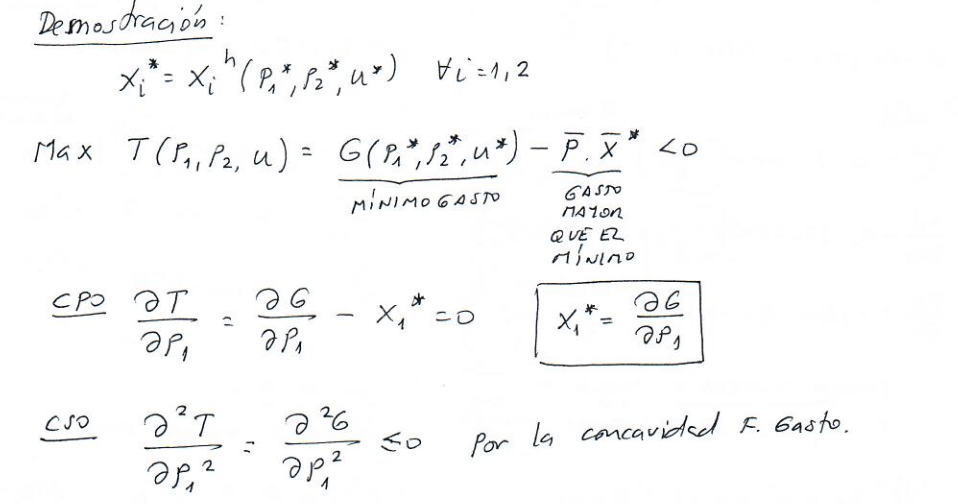 Demostración:
Xᵢ* = Xᵢʰ (P₁*, P₂*, u*) ∀i=1,2
Max T(P₁, P₂, u) = G(P₁*, P₂*, u*) − P̅ . X̅* <0
MÍNIMO GASTO
GASTO
MAYOR
QUE EL
MÍNIMO
CPO ∂T/∂P₁ = ∂G/∂P₁ − X₁* = 0 X₁* = ∂G/∂P₁
CSO ∂²T/∂P₁² = ∂²G/∂P₁² ≤0 Por la concavidad F. Gasto.